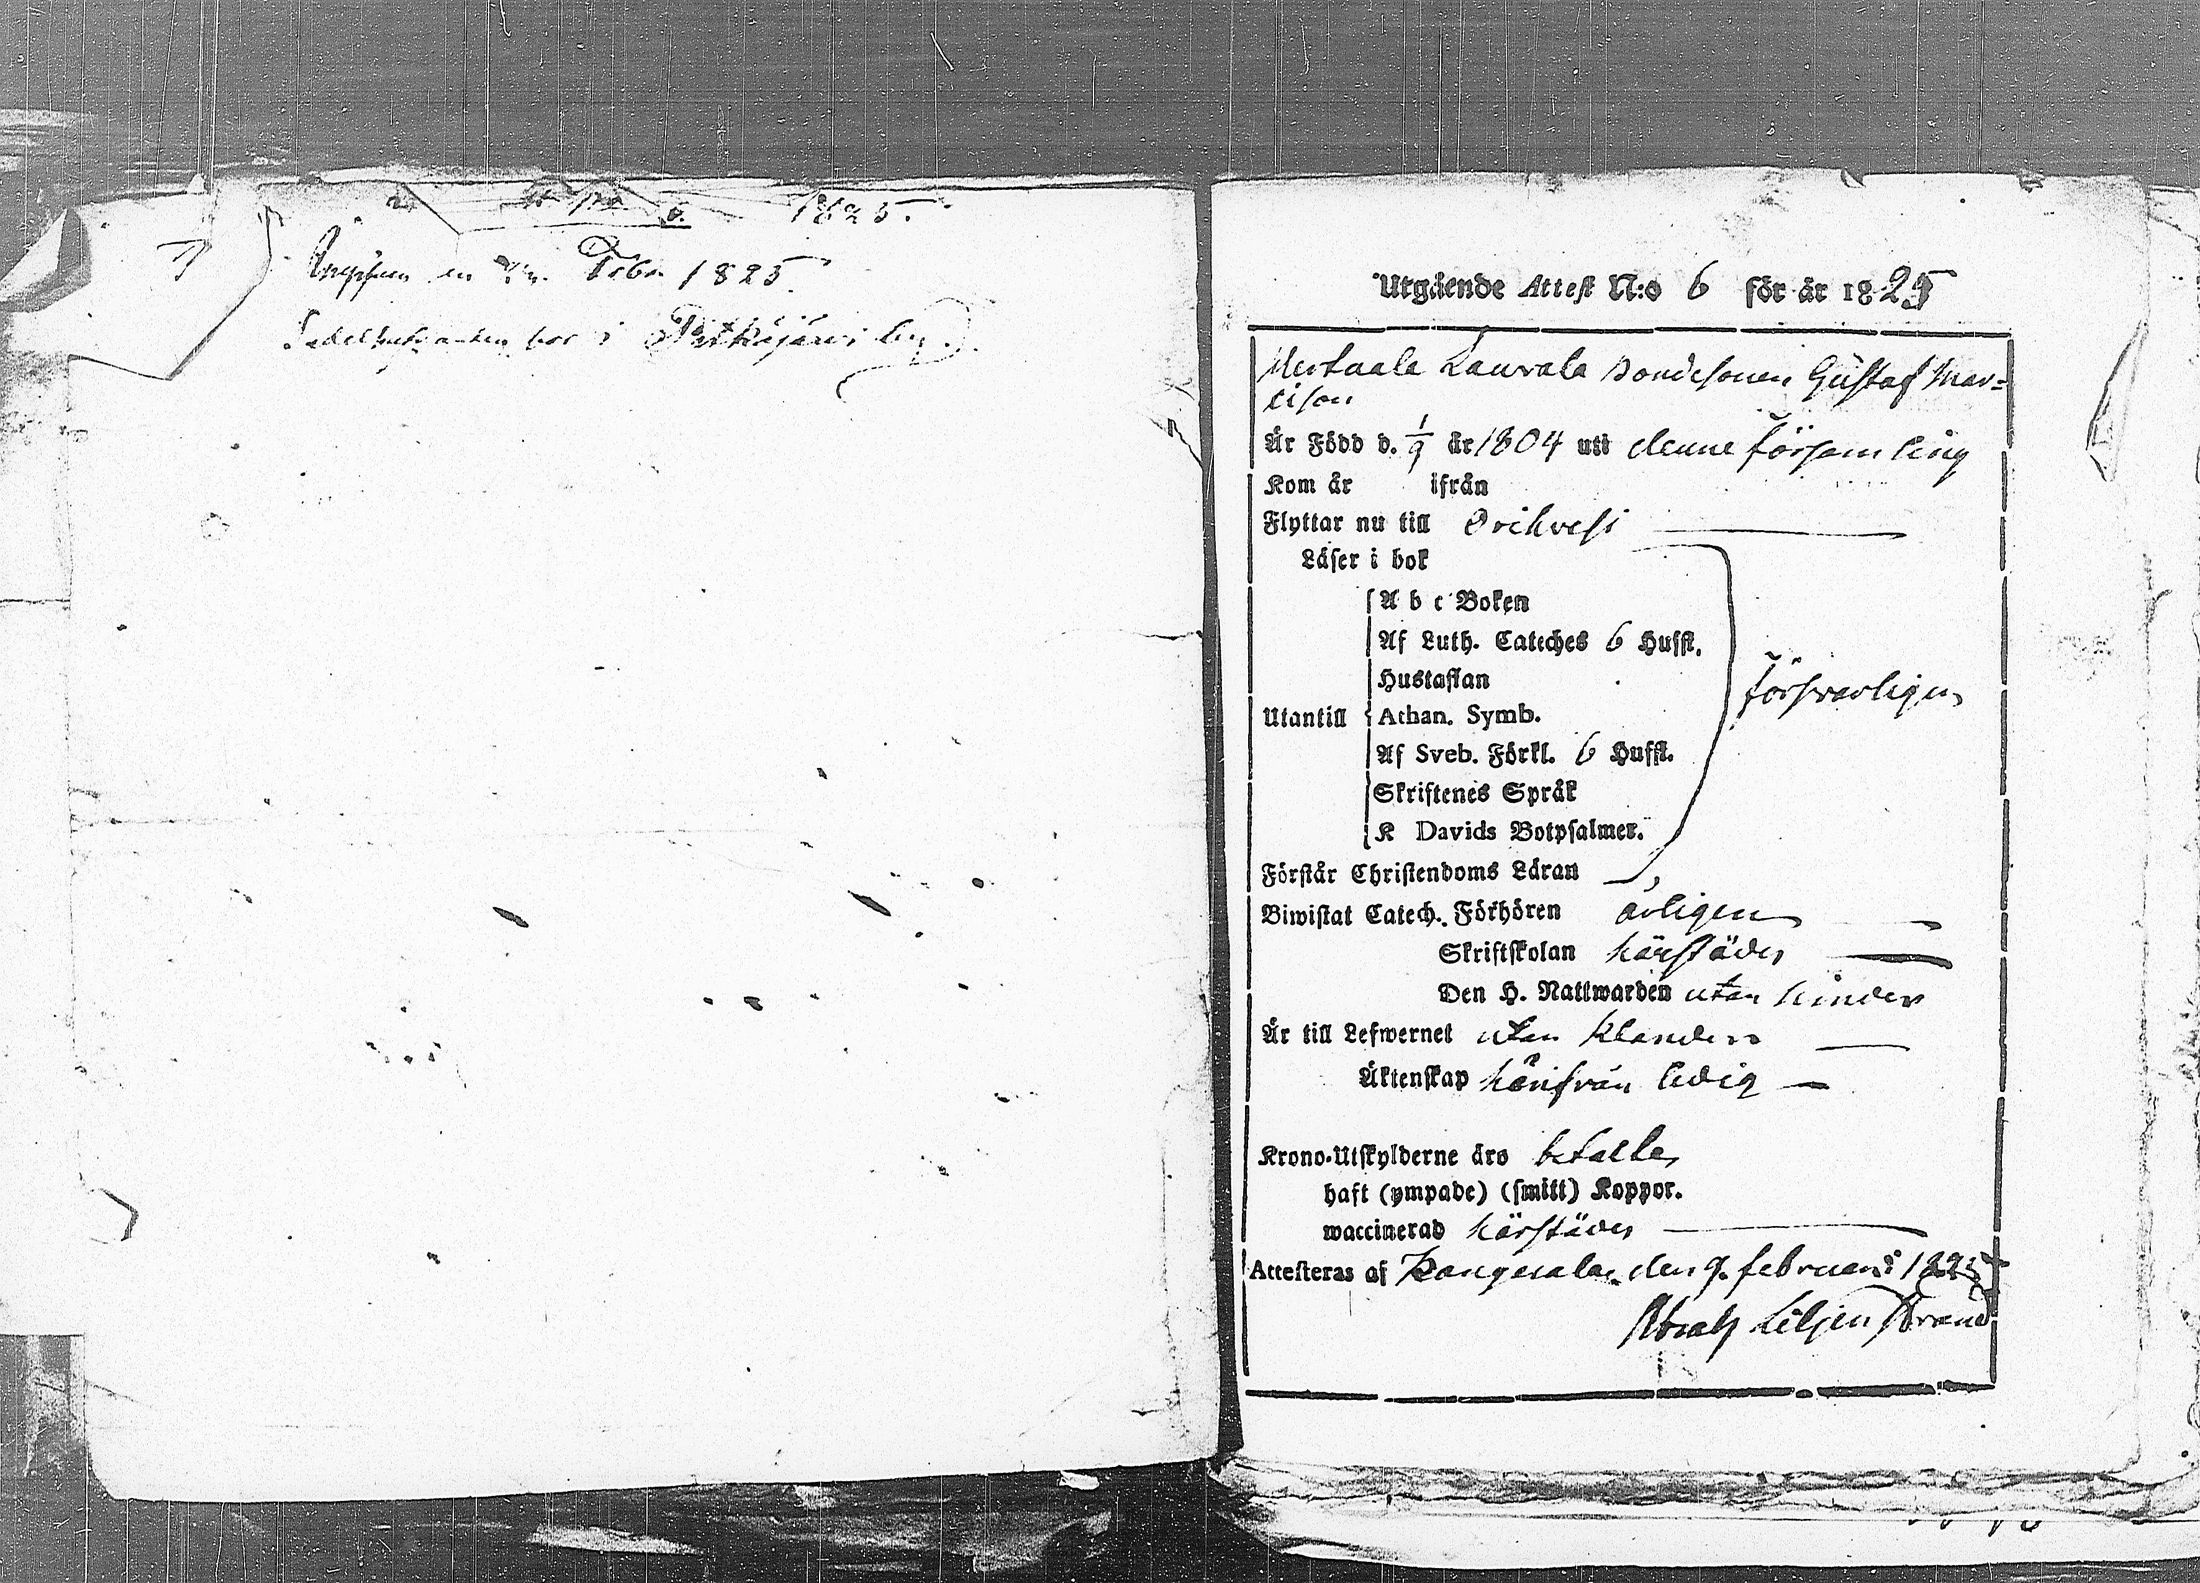 1825.
Febr 1825.
bor i Pitkäjärvi by.
Utgående Attest N:o 6 för år 1825
Mertuala Laurala Bondesonen Gustaf Mar=
tison
Är Född d. 1/9 år 1804 uti denne Församling
Kom år ifrån
Flyttar nu till Orihvesi
Läser i bok
A b c Boken
Af Luth. Cateches 6 Husst.
Hustaflan
försvarligen
Utantill Athan. Symb.
Af Sveb. Förkl. 6 Husst.
Skriftenes Språk
K Davids Botpsalmer.
Förstår Christendoms Läran
Biwistat Catech. Förhören årligen
Skriftskolan härstädes
Den H. Nattwarden utan hinder
Är till Lefwernet utan klander
Äktenskap härifrån ledig
Krono-Utskylderne äro betalte
haft (ympade) (smitt) Koppor.
waccinerad härstädes
Attesteras af Kangasala den 9. februari 1825
Abrah Liljenstrand